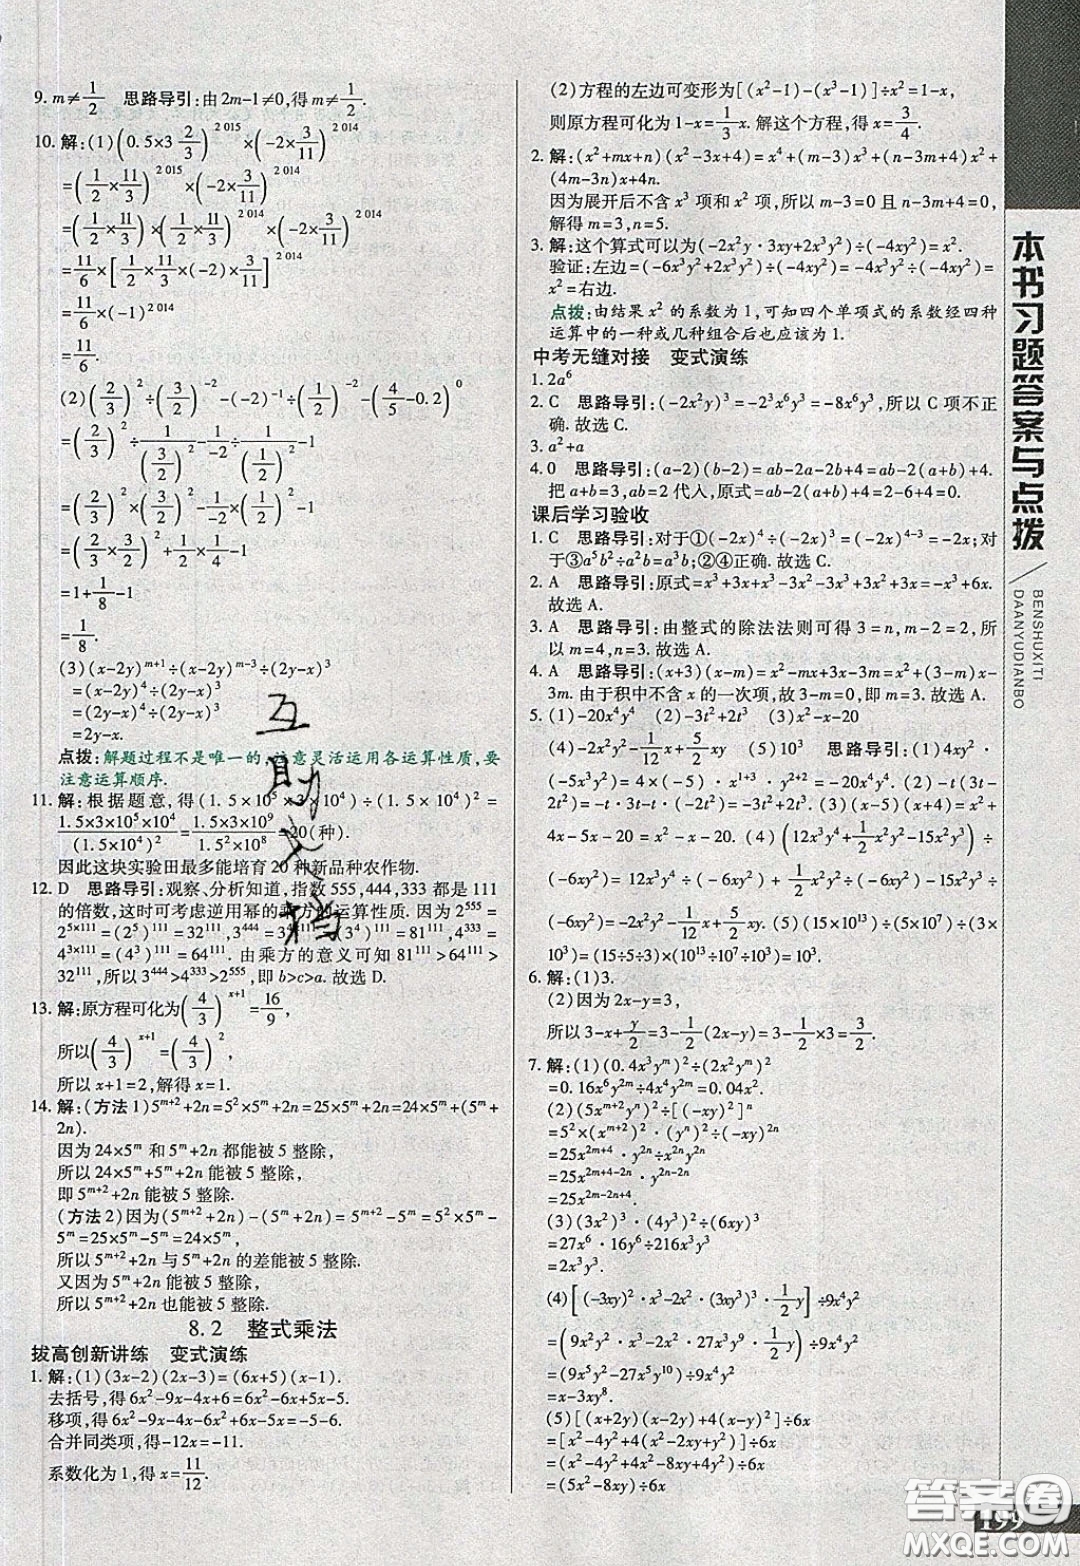 9. m≠1/2　思路导引:由2m-1≠0,得m≠1/2.
10. 解:(1)(0.5×3 2/3)^2015×(-2×3/11)^2014
=(1/2×11/3)^2015×(-2×3/11)^2014
=(1/2×11/3)×(1/2×11/3)^2014×(-2×3/11)^2014
=11/6×[1/2×11/3×(-2)×3/11]^2014
=11/6×(-1)^2014
=11/6.
(2)(2/3)^2÷(3/2)^-2-(-2)^-1-(1/2)^-2-(4/5-0.2)^0
=(2/3)^2÷1/(3/2)^2-1/(-2)-1/(1/2)^2-1
=(2/3×3/2)^2+1/2×1/4-1
=1+1/8-1
=1/8.
(3)(x-2y)^m+1÷(x-2y)^m-3÷(2y-x)^3
=(x-2y)^4÷(2y-x)^3
=(2y-x)^4÷(2y-x)^3
=2y-x.
点拨:解题过程不是唯一的,注意灵活运用各运算性质,要
注意运算顺序.
11. 解:根据题意,得(1.5×10^5×3×10^4)÷(1.5×10^4)^2=
1.5×3×10^5×10^4/(1.5×10^4)^2=1.5×3×10^9/1.5^2×10^8=20(种).
因此这块实验田最多能培育20种新品种农作物.
12. D　思路导引:观察、分析知道,指数555,444,333都是111
的倍数,这时可考虑逆用幂的乘方的运算性质.因为2^555=
2^5×111=(2^5)^111=32^111,3^444=3^4×111=(3^4)^111=81^111,4^333=
4^3×111=(4^3)^111=64^111.由乘方的意义可知81^111>64^111>
32^111,所以3^444>4^333>2^555,即b>c>a.故选D.
13. 解:原方程可化为(4/3)^x+1=16/9,
所以(4/3)^x+1=(4/3)^2,
所以x+1=2,解得x=1.
14. 解:(方法1)5^m+2+2n=5^2×5^m+2n=25×5^m+2n=24×5^m+(5^m+
2n).
因为24×5^m和5^m+2n都能被5整除,
所以24×5^m+5^m+2n能被5整除.
即5^m+2+2n能被5整除.
(方法2)因为(5^m+2+2n)-(5^m+2n)=5^m+2-5^m=5^2×5^m-5^m
=25×5^m-5^m=24×5^m,
所以5^m+2+2n与5^m+2n的差能被5整除,
又因为5^m+2n能被5整除,
所以5^m+2+2n也能被5整除.
8.2　整式乘法
拔高创新讲练　变式演练
1. 解:(1)(3x-2)(2x-3)=(6x+5)(x-1).
去括号,得6x^2-9x-4x+6=6x^2-6x+5x-5.
移项,得6x^2-9x-4x-6x^2+6x-5x=-5-6.
合并同类项,得-12x=-11.
系数化为1,得x=11/12.
(2)方程的左边可变形为[(x^2-1)-(x^3-1)]÷x^2=1-x,
则原方程可化为1-x=1/3x.解这个方程,得x=3/4.
2. 解:(x^2+mx+n)(x^2-3x+4)=x^4+(m-3)x^3+(n-3m+4)x^2+
(4m-3n)x+4n.
因为展开后不含x^3项和x^2项,所以m-3=0且n-3m+4=0,
解得m=3,n=5.
3. 解:这个算式可以为(-2x^2y·3xy+2x^3y^2)÷(-4xy^2)=x^2.
验证:左边=(-6x^3y^2+2x^3y^2)÷(-4xy^2)=-4x^3y^2÷(-4xy^2)=
x^2=右边.
点拨:由结果x^2的系数为1,可知四个单项式的系数经四种
运算中的一种或几种组合后也应该为1.
中考无缝对接　变式演练
1. 2a^6
2. C　思路导引:(-2x^2y)^3=-2^3x^6y^3=-8x^6y^3,所以C项不正
确.故选C.
3. a^2+a
4. 0　思路导引:(a-2)(b-2)=ab-2a-2b+4=ab-2(a+b)+4.
把a+b=3,ab=2代入,原式=ab-2(a+b)+4=2-6+4=0.
课后学习验收
1. C　思路导引:对于①(-2x)^4÷(-2x)^3=(-2x)^4-3=-2x;对
于③a^5b^2÷a^2b=a^3b;②④正确.故选C.
2. A　思路导引:原式=x^3+3x+x^3-3x^2-3x^3+3x^2+3x=-x^3+6x.
故选A.
3. A　思路导引:由整式的除法法则可得3=n,m-2=2,所
以m=4,n=3.故选A.
4. A　思路导引:(x+3)(x-m)=x^2-mx+3x-3m=x^2+(3-m)x-
3m.由于积中不含x的一次项,故3-m=0,即m=3.故选A.
5. (1)-20x^4y^4　(2)-3t^2+2t^3　(3)x^2-x-20
(4)-2x^2y^2-1/12x+5/2xy　(5)10^3　思路导引:(1)4xy^2·
(-5x^3y^2)=4×(-5)·x^1+3y^2+2=-20x^4y^4.(2)-t·(3t-
2t^2)=-t·3t-t·(-2t^2)=-3t^2+2t^3.(3)(x-5)(x+4)=x^2+
4x-5x-20=x^2-x-20.(4)(12x^3y^4+1/2x^2y^2-15x^2y^3)÷
(-6xy^2)=12x^3y^4÷(-6xy^2)+1/2x^2y^2÷(-6xy^2)-15x^2y^3÷
(-6xy^2)=-2x^2y^2-1/12x+5/2xy.(5)(15×10^13)÷(5×10^7)÷(3×
10^3)=(15÷5÷3)×(10^13÷10^7÷10^3)=10^3.
6. 解:(1)3.
(2)因为2x-y=3,
所以3-x+y/2=3-1/2(2x-y)=3-1/2×3=3/2.
7. 解:(1)(0.4x^3y^m)^2÷(2x^2y^m)^2
=0.16x^6y^2m÷4x^4y^2m=0.04x^2.
(2)(5x^m+2y^n)^2÷[(-xy)^2]^n
=5^2×(x^m+2)^2·(y^n)^2÷(-xy)^2n
=25x^2m+4·y^2n÷x^2ny^2n
=25x^2m+4-2n·y^2n-2n
=25x^2m-2n+4.
(3)(3x^2)^3·(4y^3)^2÷(6xy)^3
=27x^6·16y^6÷216x^3y^3
=2x^3y^3.
(4)[(-3xy)^2·x^3-2x^2·(3xy^3)^3·1/2y]÷9x^4y^2
=(9x^2y^2·x^3-2x^2·27x^3y^9·1/2y)÷9x^4y^2
=(9x^5y^2-27x^5y^10)÷9x^4y^2
=x-3xy^8.
(5)[(x+2y)(x-2y)+4(x-y)^2]÷6x
=[x^2-4y^2+4(x^2-2xy+y^2)]÷6x
=(x^2-4y^2+4x^2-8xy+4y^2)÷6x
=(5x^2-8xy)÷6x
本书习题答案与点拨
BENSHUXITI
DAANYUDIANBO
互助文档
199
答案圈
MXQE.COM